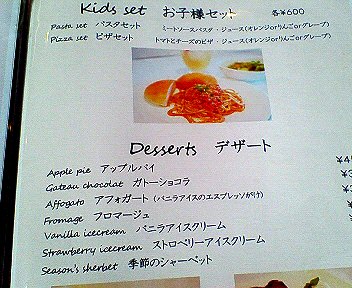 Kids set お子様セット 各¥600
Pasta set パスタセット ミートソースパスタ・ジュース(オレンジorりんごorグレープ)
Pizza set ピザセット トマトとチーズのピザ・ジュース(オレンジorりんごorグレープ)
Desserts デザート
Apple pie アップルパイ
Gateau chocolat ガトーショコラ
Affogato アフォガート (バニラアイスのエスプレッソがけ)
Fromage フロマージュ
Vanilla icecream バニラアイスクリーム
Strawberry icecream ストロベリーアイスクリーム
Season's sherbet 季節のシャーベット